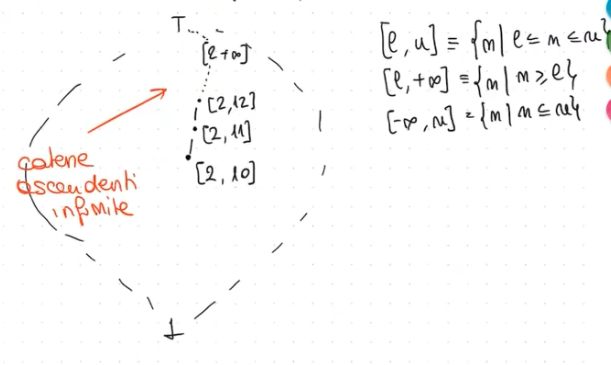 T...
[e+∞]
[2,12]
[2,11]
[2,10]
catene
ascendenti
infinite
⊥
[e,u] ≡ {m | e ≤ m ≤ u}
[e,+∞] = {m | m ≥ e}
[-∞,u] = {m | m ≤ u}